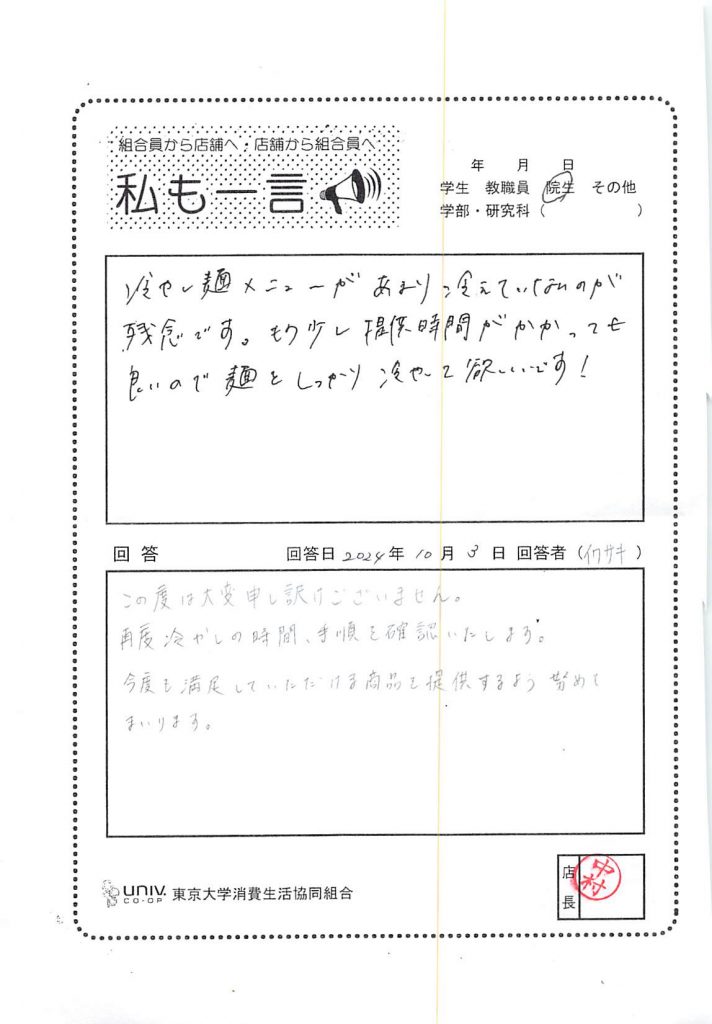 組合員から店舗へ・店舗から組合員へ
私も一言
年 月 日
学生 教職員 院生 その他
学部・研究科 ( )
冷やし麺メニューがあまり冷えていないのが
残念です。もう少し提供時間がかかっても
良いので麺をしっかり冷やして欲しいです!
回答 回答日 2024年 10月 3日 回答者 (イワサキ)
この度は大変申し訳けございません。
再度冷やしの時間、手順を確認いたします。
今度も満足していただける商品を提供するよう努めて
まいります。
UNIV. CO-OP 東京大学消費生活協同組合
店長
中村